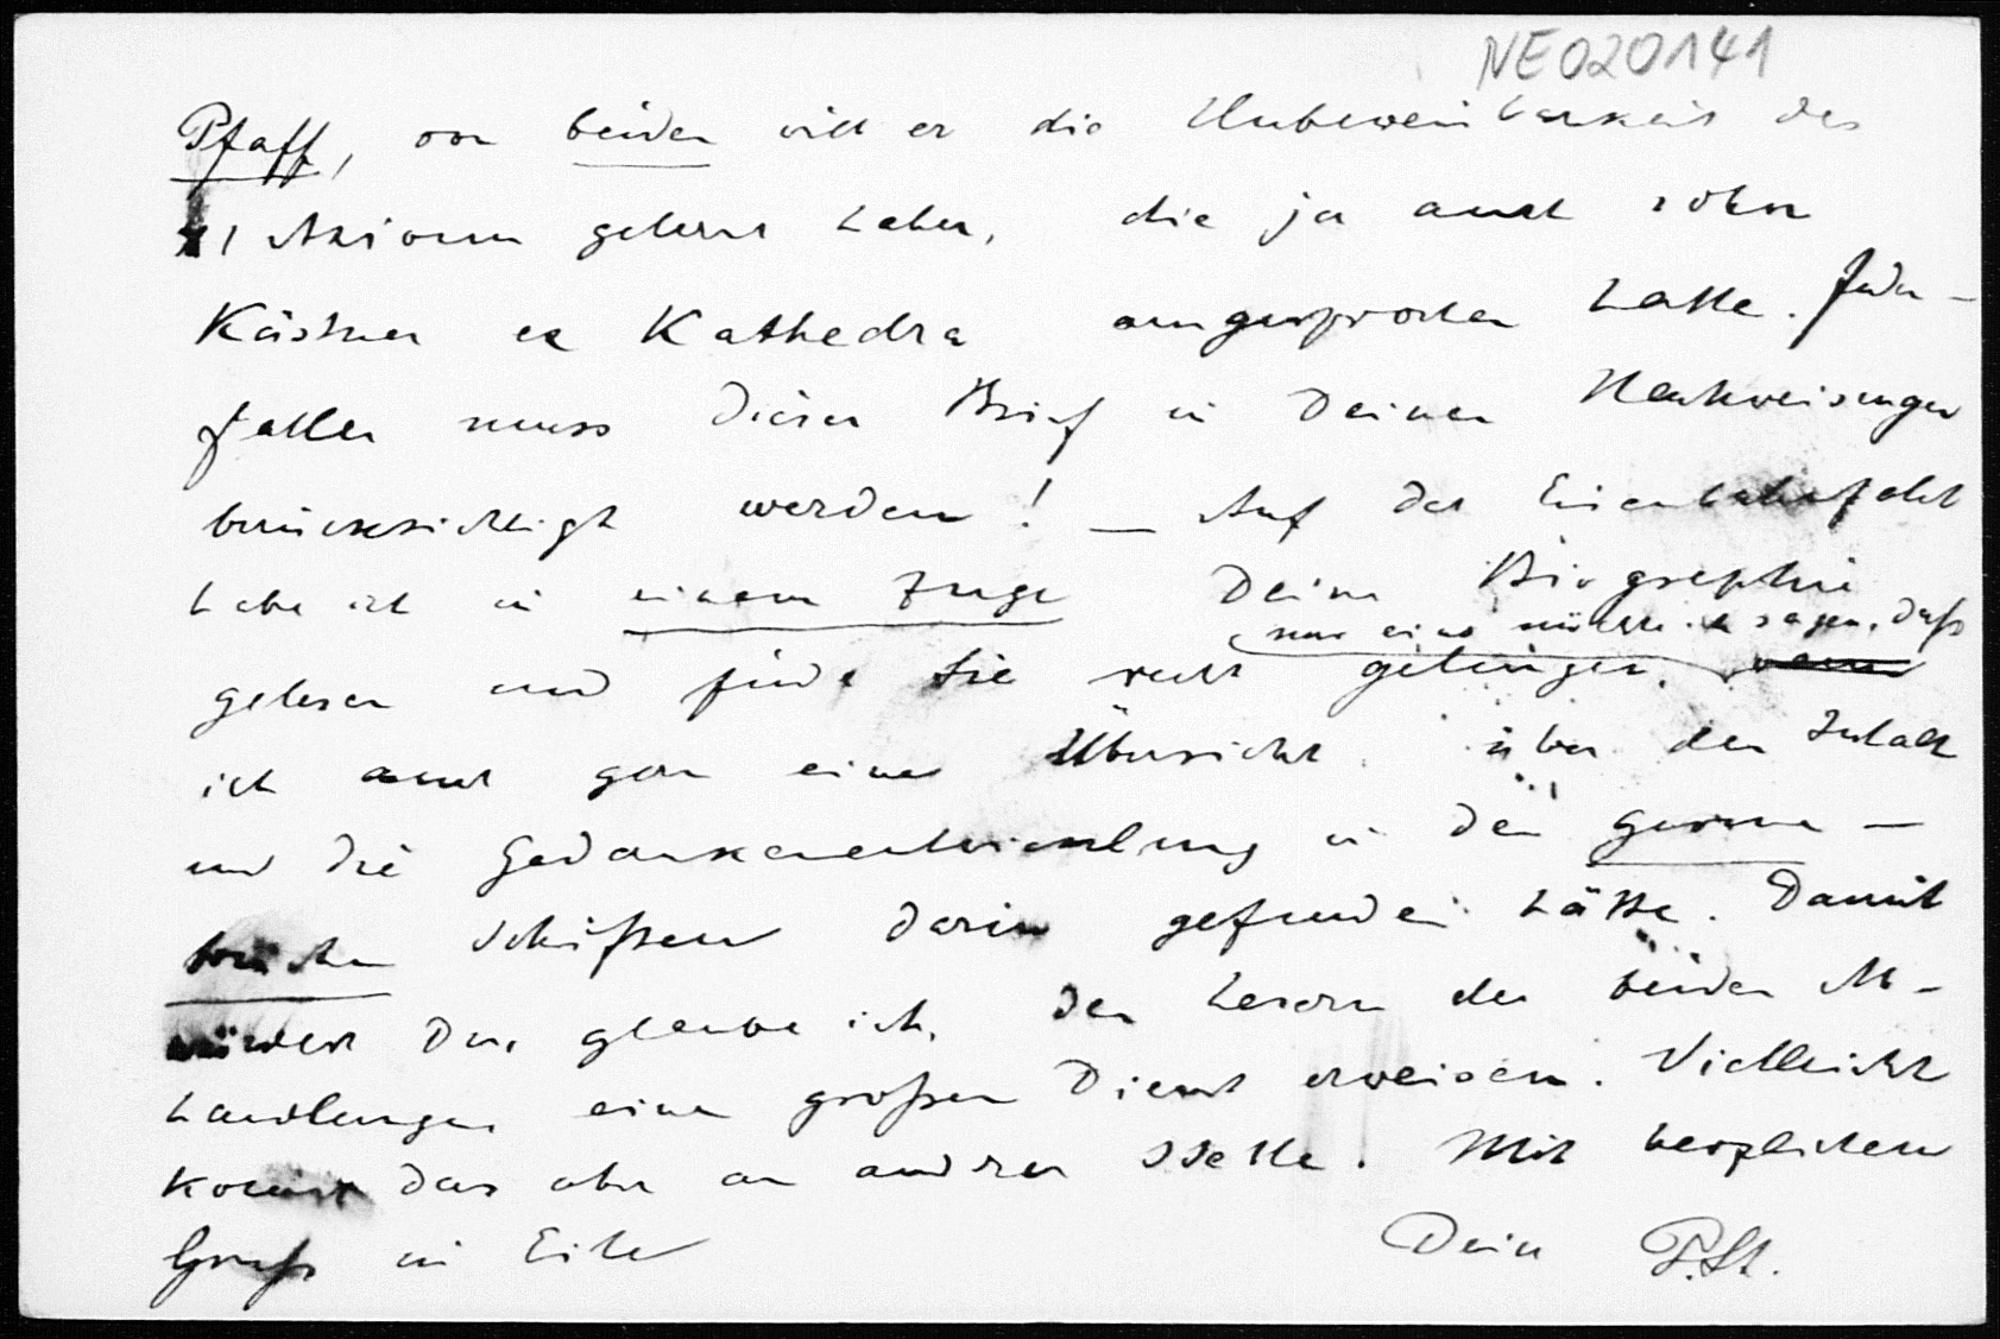 NE020141
Pfaff, von beiden will er die Unbeweisbarkeit des
11 Axioms gelernt haben, die ja auch schon
Kästner ex Kathedra ausgesprochen hatte. Jeden-
falls muss dieser Brief in Deinen Nachweisungen
berücksichtigt werden! — Auf der Eisenbahnfahrt
habe ich in einem Zuge Deine Biographie
nur eins möchte ich sagen, daß
gelesen und finde sie recht gelungen.
ich auch gern eine Übersicht über den Inhalt
und die Gedankenentwicklung in den geome-
trischen Schriften darin gefunden hätte. Damit
würdest Du, glaube ich, den Lesern der beiden Ab-
handlungen einen großen Dienst erweisen. Vielleicht
kommt das aber an andrer Stelle. Mit herzlichem
Gruß in Eile Dein P. St.